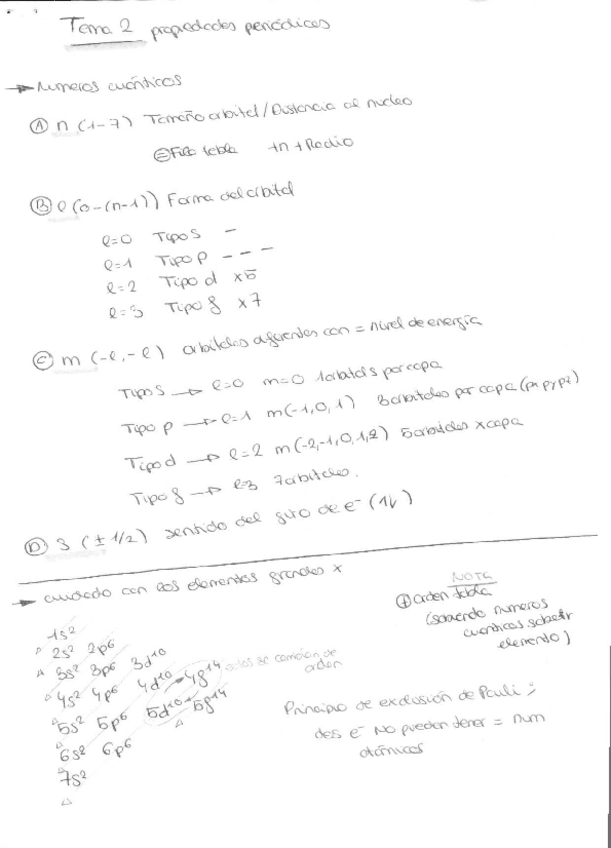 Tema 2 propiedades periódicas
→ Numeros cuánticos
Ⓐ n (1-7) Tamaño orbital / Distancia al nucleo
⊜ Fila tabla +n + Radio
Ⓑ l (0-(n-1)) Forma del orbital
l=0 Tipo s –
l=1 Tipo p – – –
l=2 Tipo d x5
l=3 Tipo f x7
Ⓒ m (-l, -l) orbitales diferentes con = nivel de energía
Tipo s → l=0 m=0 1 orbital s por capa
Tipo p → l=1 m(-1,0,1) 3 orbitales por capa (px py pz)
Tipo d → l=2 m(-2,-1,0,1,2) 5 orbitales x capa
Tipo f → l=3 7 orbitales.
Ⓓ s (± 1/2) sentido del giro de e⁻ (↑↓)
→ cuidado con los elementos grandes x
NOTA
orden tabla
(sabiendo numeros
cuanticos saber
elemento)
1s²
2s² 2p⁶
3s² 3p⁶ 3d¹⁰
4s² 4p⁶ 4d¹⁰ 4f¹⁴ se cambian de
orden
5s² 5p⁶ 5d¹⁰ 5f¹⁴
6s² 6p⁶
7s²
Principio de exclusión de Pauli:
dos e⁻ No pueden tener = num
atómicos